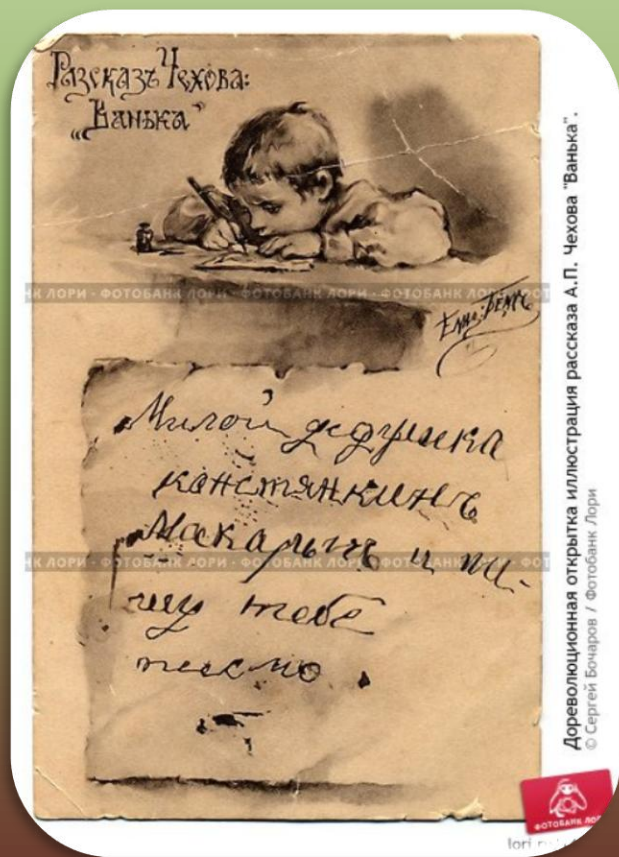 Разсказъ Чехова:
„Ванька"
НК ЛОРИ · ФОТОБАНК ЛОРИ · ФОТОБАНК ЛОРИ · ФОТОБАНК ЛОРИ · ФОТ
Елис: Бемъ
Милой дедушка
констянкинъ
Макарычъ и пи-
шу тебе
письмо.
НК ЛОРИ · ФОТОБАНК ЛОРИ
Дореволюционная открытка иллюстрация рассказа А.П. Чехова "Ванька".
© Сергей Бочаров / Фотобанк Лори
ФОТОБАНК ЛОРИ
lori